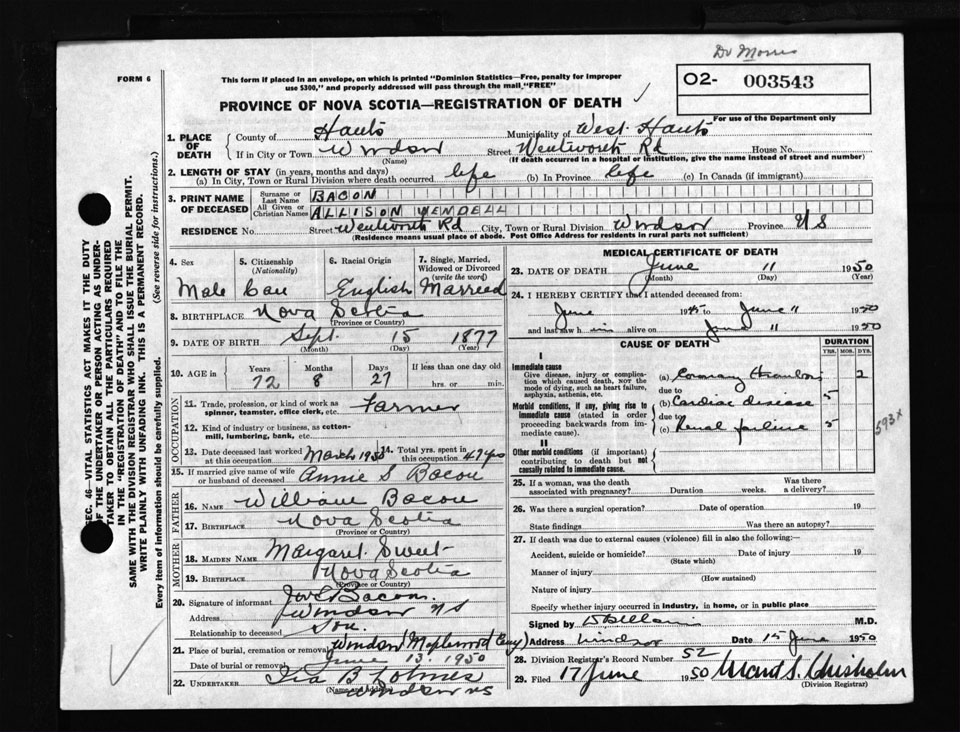 Dr Morris
FORM 6
This form if placed in an envelope, on which is printed "Dominion Statistics—Free, penalty for improper
use $300," and properly addressed will pass through the mail "FREE"
O2- 003543
For use of the Department only
PROVINCE OF NOVA SCOTIA—REGISTRATION OF DEATH
1. PLACE OF DEATH
County of Hants Municipality of West Hants
If in City or Town Windsor Street Wentworth Rd House No.
(Name) (If death occurred in a hospital or institution, give the name instead of street and number)
2. LENGTH OF STAY (in years, months and days)
(a) In City, Town or Rural Division where death occurred life (b) In Province life (c) In Canada (if immigrant)
3. PRINT NAME OF DECEASED
Surname or Last Name BACON
All Given or Christian Names ALLISON WENDELL
RESIDENCE No. Street Wentworth Rd City, Town or Rural Division Windsor Province N S
(Residence means usual place of abode. Post Office Address for residents in rural parts not sufficient)
4. Sex Male
5. Citizenship (Nationality) Can
6. Racial Origin English
7. Single, Married, Widowed or Divorced (write the word) Married
8. BIRTHPLACE Nova Scotia
(Province or Country)
9. DATE OF BIRTH Sept. 15 1877
(Month) (Day) (Year)
10. AGE in Years 72 Months 8 Days 27 If less than one day old hrs. or min.
OCCUPATION
11. Trade, profession, or kind of work as spinner, teamster, office clerk, etc. Farmer
12. Kind of industry or business, as cotton-mill, lumbering, bank, etc.
13. Date deceased last worked at this occupation March 1950 14. Total yrs. spent in this occupation 47 yrs
15. If married give name of wife or husband of deceased Annie S Bacon
FATHER
16. NAME William Bacon
17. BIRTHPLACE Nova Scotia
(Province or Country)
MOTHER
18. MAIDEN NAME Margaret Sweet
19. BIRTHPLACE Nova Scotia
(Province or Country)
20. Signature of informant Bacon.
Address Windsor N S
Relationship to deceased Son.
21. Place of burial, cremation or removal Windsor (Maplewood Cemy)
Date of burial or removal June 13. 1950
22. UNDERTAKER Ira B Holmes
(Name and Address) Windsor NS
MEDICAL CERTIFICATE OF DEATH
23. DATE OF DEATH June 11 1950
(Month) (Day) (Year)
24. I HEREBY CERTIFY that I attended deceased from
June 1945 to June 11 1950
and last saw him alive on June 11 1950
CAUSE OF DEATH
DURATION
YRS. MOS. DYS.
I
Immediate cause
Give disease, injury or complication which caused death, not the mode of dying, such as heart failure, asphyxia, asthenia, etc.
(a) Coronary thrombosis 2
due to
Morbid conditions, if any, giving rise to immediate cause (stated in order proceeding backwards from immediate cause).
(b) Cardiac disease 5
due to
(c) Renal failure 5
593x
II
Other morbid conditions (if important) contributing to death but not causally related to immediate cause.
25. If a woman, was the death associated with pregnancy? Duration weeks. Was there a delivery?
26. Was there a surgical operation? Date of operation 19
State findings Was there an autopsy?
27. If death was due to external causes (violence) fill in also the following:—
Accident, suicide or homicide? Date of injury 19
(State which)
Manner of injury
(How sustained)
Nature of injury
Specify whether injury occurred in industry, in home, or in public place
Signed by M.D.
Address Windsor Date 15 June 1950
28. Division Registrar's Record Number 52
29. Filed 17 June 1950 S. Chisholm
(Division Registrar)
SEC. 46—VITAL STATISTICS ACT MAKES IT THE DUTY
OF THE UNDERTAKER OR PERSON ACTING AS UNDER-
TAKER TO OBTAIN ALL THE PARTICULARS REQUIRED
IN THE "REGISTRATION OF DEATH" AND TO FILE THE
SAME WITH THE DIVISION REGISTRAR WHO SHALL ISSUE THE BURIAL PERMIT.
WRITE PLAINLY WITH UNFADING INK. THIS IS A PERMANENT RECORD.
Every item of information should be carefully supplied. (See reverse side for instructions.)